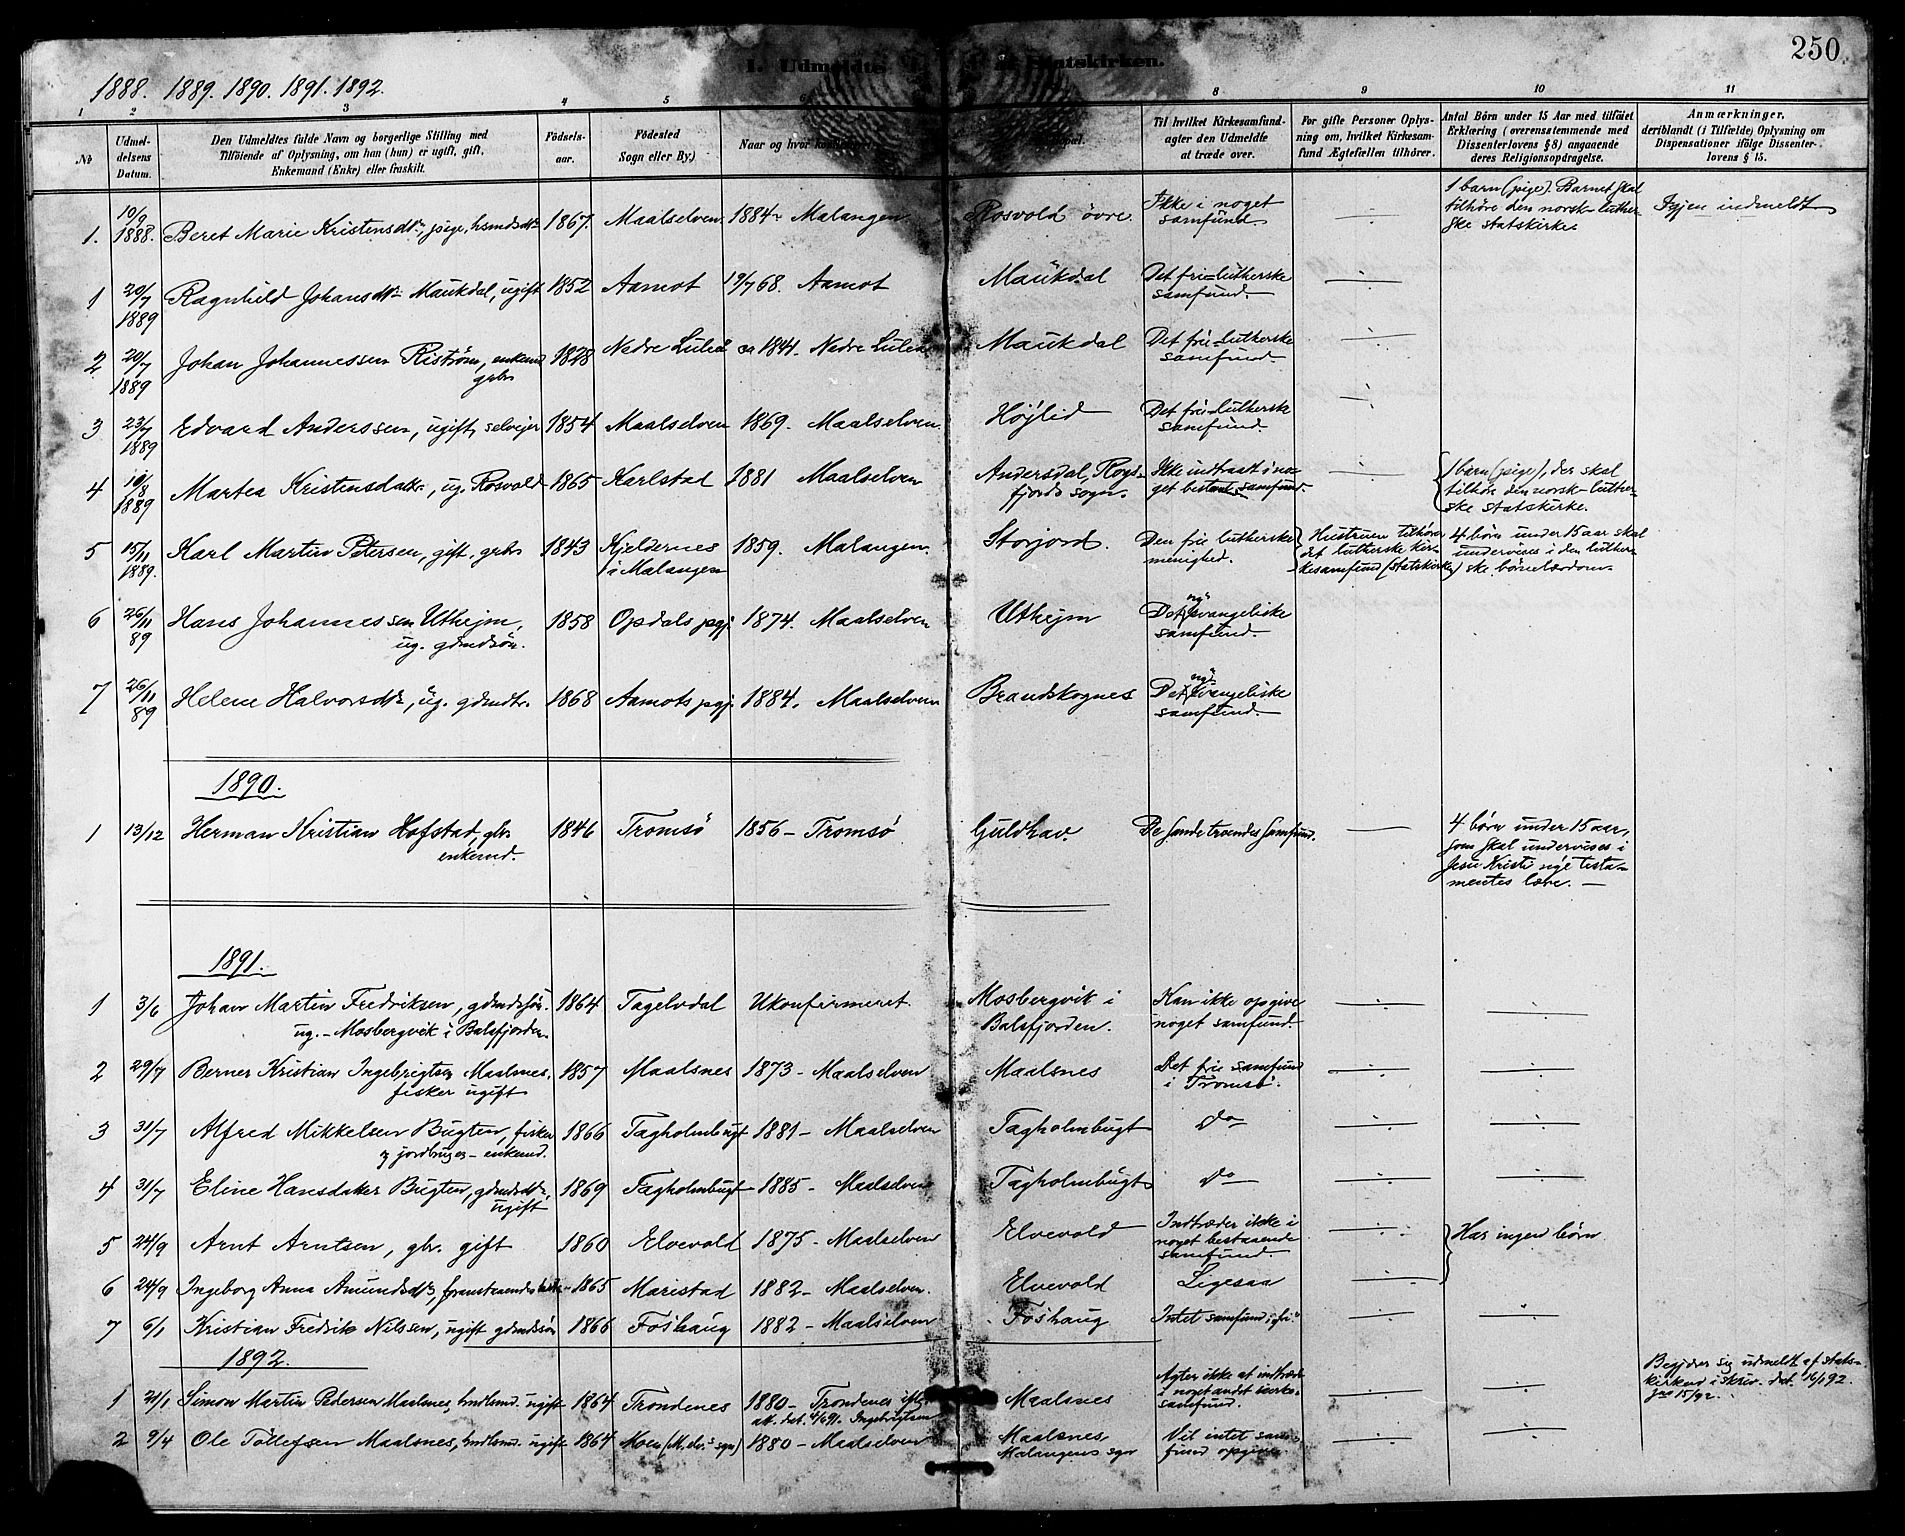 250.
1888. 1889. 1890. 1891. 1892.
I. Udmeldte Statskirken.
1 2 3 4 5 6 8 9 10 11
No
Udmeldelsens Datum.
Den Udmeldtes fulde Navn og borgerlige Stilling med
Tilføiende af Oplysning, om han (hun) er ugift, gift,
Enkemand (Enke) eller fraskilt.
Fødselsaar.
Fødested
Sogn eller By.)
Naar og hvor
Til hvilket Kirkesamfund
agter den Udmeldte
at træde over.
For gifte Personer Oplysning om, hvilket Kirkesamfund Ægtefællen tilhører.
Antal Børn under 15 Aar med tilføiet
Erklæring (overensstemmende med
Dissenterlovens § 8) angaaende
deres Religionsopdragelse.
Anmærkninger,
deriblandt (i Tilfælde) Oplysning om
Dispensationer ifølge Dissenterlovens § 15.
1. 10/9 1888. Beret Marie Kristensdtr, pige, husmdsdtr 1867. Maalselven 1884 - Malangen Rosvold övre. Ikke i noget samfund. -:- 1 barn (pige). Barnet skal tilhöre den norsk-lutherske statskirke Igjen indmeldt
1 20/7 1889 Ragnhild Johansdtr Maukdal, ugift 1852 Aamot 19/7 68. Aamot Maukdal Det fri-lutherske samfund. -:-
2 20/7 1889 Johan Johannessen Riström, enkemd grbr 1828 Nedre Luleå ca 1841. Nedre Luleå Maukdal Det fri-lutherske samfund. -:-
3 23/7 1889 Edvard Anderssen, ugift, selvejer 1854 Maalselven 1869. Maalselven. Höjlid Det fri-lutherske samfund. -:-
4 10/8 1889 Martea Kristensdatter, ug. Rosvold 1865 Karlstad 1881 Maalselven Andersdal, fjords sogn. Ikke indtraadt i noget bestaaende samfund. -:- 1 barn (pige), der skal tilhöre den norsk-lutherske statskirke.
5 15/11 1889. Karl Martin Petersen, gift, grbr 1843 Kjeldernes i Malangen 1859. Malangen. Storjord. Den frie lutherske menighed. Hustruen tilhörer det lutherske kirkesamfund (statskirke) 4 börn under 15 aar skal undervises i den lutherske börnelærdom.
6 26/11 89 Hans Johannessen Uthejm, ug. gdmdsön. 1858 Opdals pgj. 1874. Maalselven Uthejm Det ny evangeliske samfund. -:-
7 26/11 89 Helene Halvorsdtr, ug. gdmdtr. 1868 Aamots pgj. 1884. Maalselven Brandskognes Det ny evangeliske samfund.
1890.
1 13/12 Herman Kristian Hofstad, gbr. enkemd. 1846 Tromsö 1856 - Tromsö Guldhav. De sande troendes samfund. — 4 börn under 15 aar, som skal undervises i Jesu Kristi nye testamentes lære. —
1891.
1 3/6 Johan Martin Fredriksen, gdmdssön. ug. - Mosbergvik i Balsfjorden. 1864 Tagelvdal Ukonfirmeret. Mosbergvik i Balsfjorden. Kan ikke opgive noget samfund. -:- -:-
2 29/7 Berner Kristian Ingebrigtsen Maalsnes. fisker ugift 1857 Maalsnes 1873 - Maalselven Maalsnes Det frie samfund i Tromsö. -:- -:-
3 31/7 Alfred Mikkelsen Bugten, fisker og jordbruger - enkemd. 1866 Tagholmbugt 1881 - Maalselven Tagholmbugt do -:- -:-
4 31/7 Eline Hansdatter Bugten, gdmdsdtr, ugift 1869 Tagholmbugt 1885 - Maalselven Tagholmbugt do -:- -:-
5 24/9 Arnt Arntsen, gbr. gift 1860 Elvevold 1875 - Maalselven Elvevold Indtræder ikke i noget bestaaende samfund. -:- Har ingen börn
6 24/9 Ingeborg Anna Amundsdtr, foranstaaendes 1865 Maristad 1882 - Maalselven. Elvevold Ligesaa -:-
7 6/1 Kristian Fredrik Nilssen, ugift gdmdssön 1866 Foshaug 1882 - Maalselven Foshaug Intet samfund -:- -:-
1892.
1 21/1 Simon Martin Pedersen Maalsnes, hndlsmd. ugift 1864 Trondenes 1880 - Trondenes iflg. att. dat. 4/6 91. Ingebrigtsen Maalsnes Agter ikke at indtræde i noget andet kirkesamfund. -:- -:- Begjærer sig udmeldt af statskirken i skriv. dat. 16/1 92. jno 15/92.
2 9/4 Ole Tollefsen Maalsnes, hndlsmd. ugift 1864 Moen 1880 - Maalselven Maalsnes Malangens sgn Vil intet samfund opgive. -:- -:-